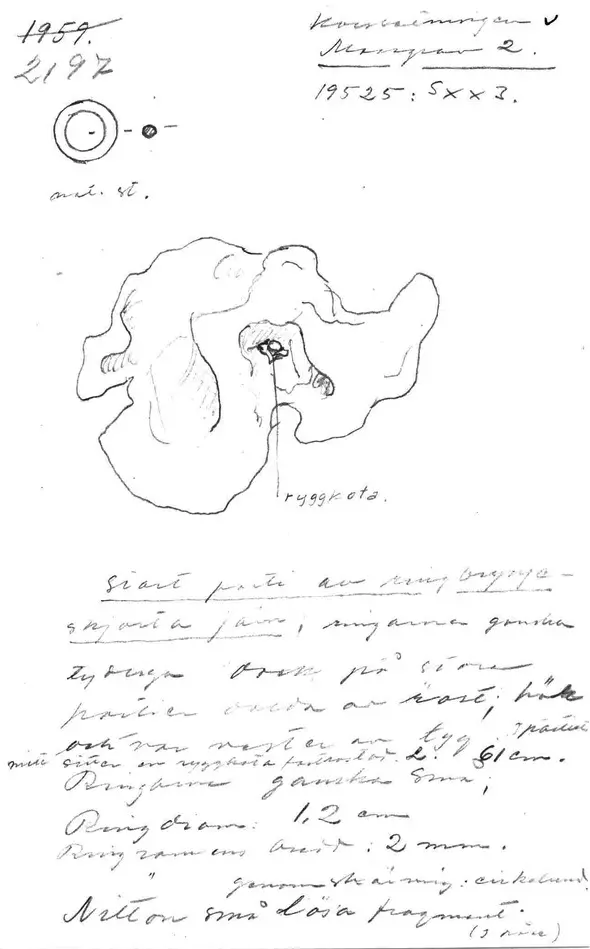 1959.
2197
Korsbetningen
Massgrav 2.
19525: Sxx3.
nat. st.
ryggkota.
Stort parti av ringbrynje-
skjorta järn, ringarna ganska
tydliga dock på stora
partier av rost; här
och var rester av tyg
mitt sitter en ryggkota fastrostad. L. 61 cm.
Ringarna ganska små;
Ringdiam: 1,2 cm
Ringramens bredd: 2 mm.
" genomskärning: cirkelrund.
Nitton små lösa fragment.